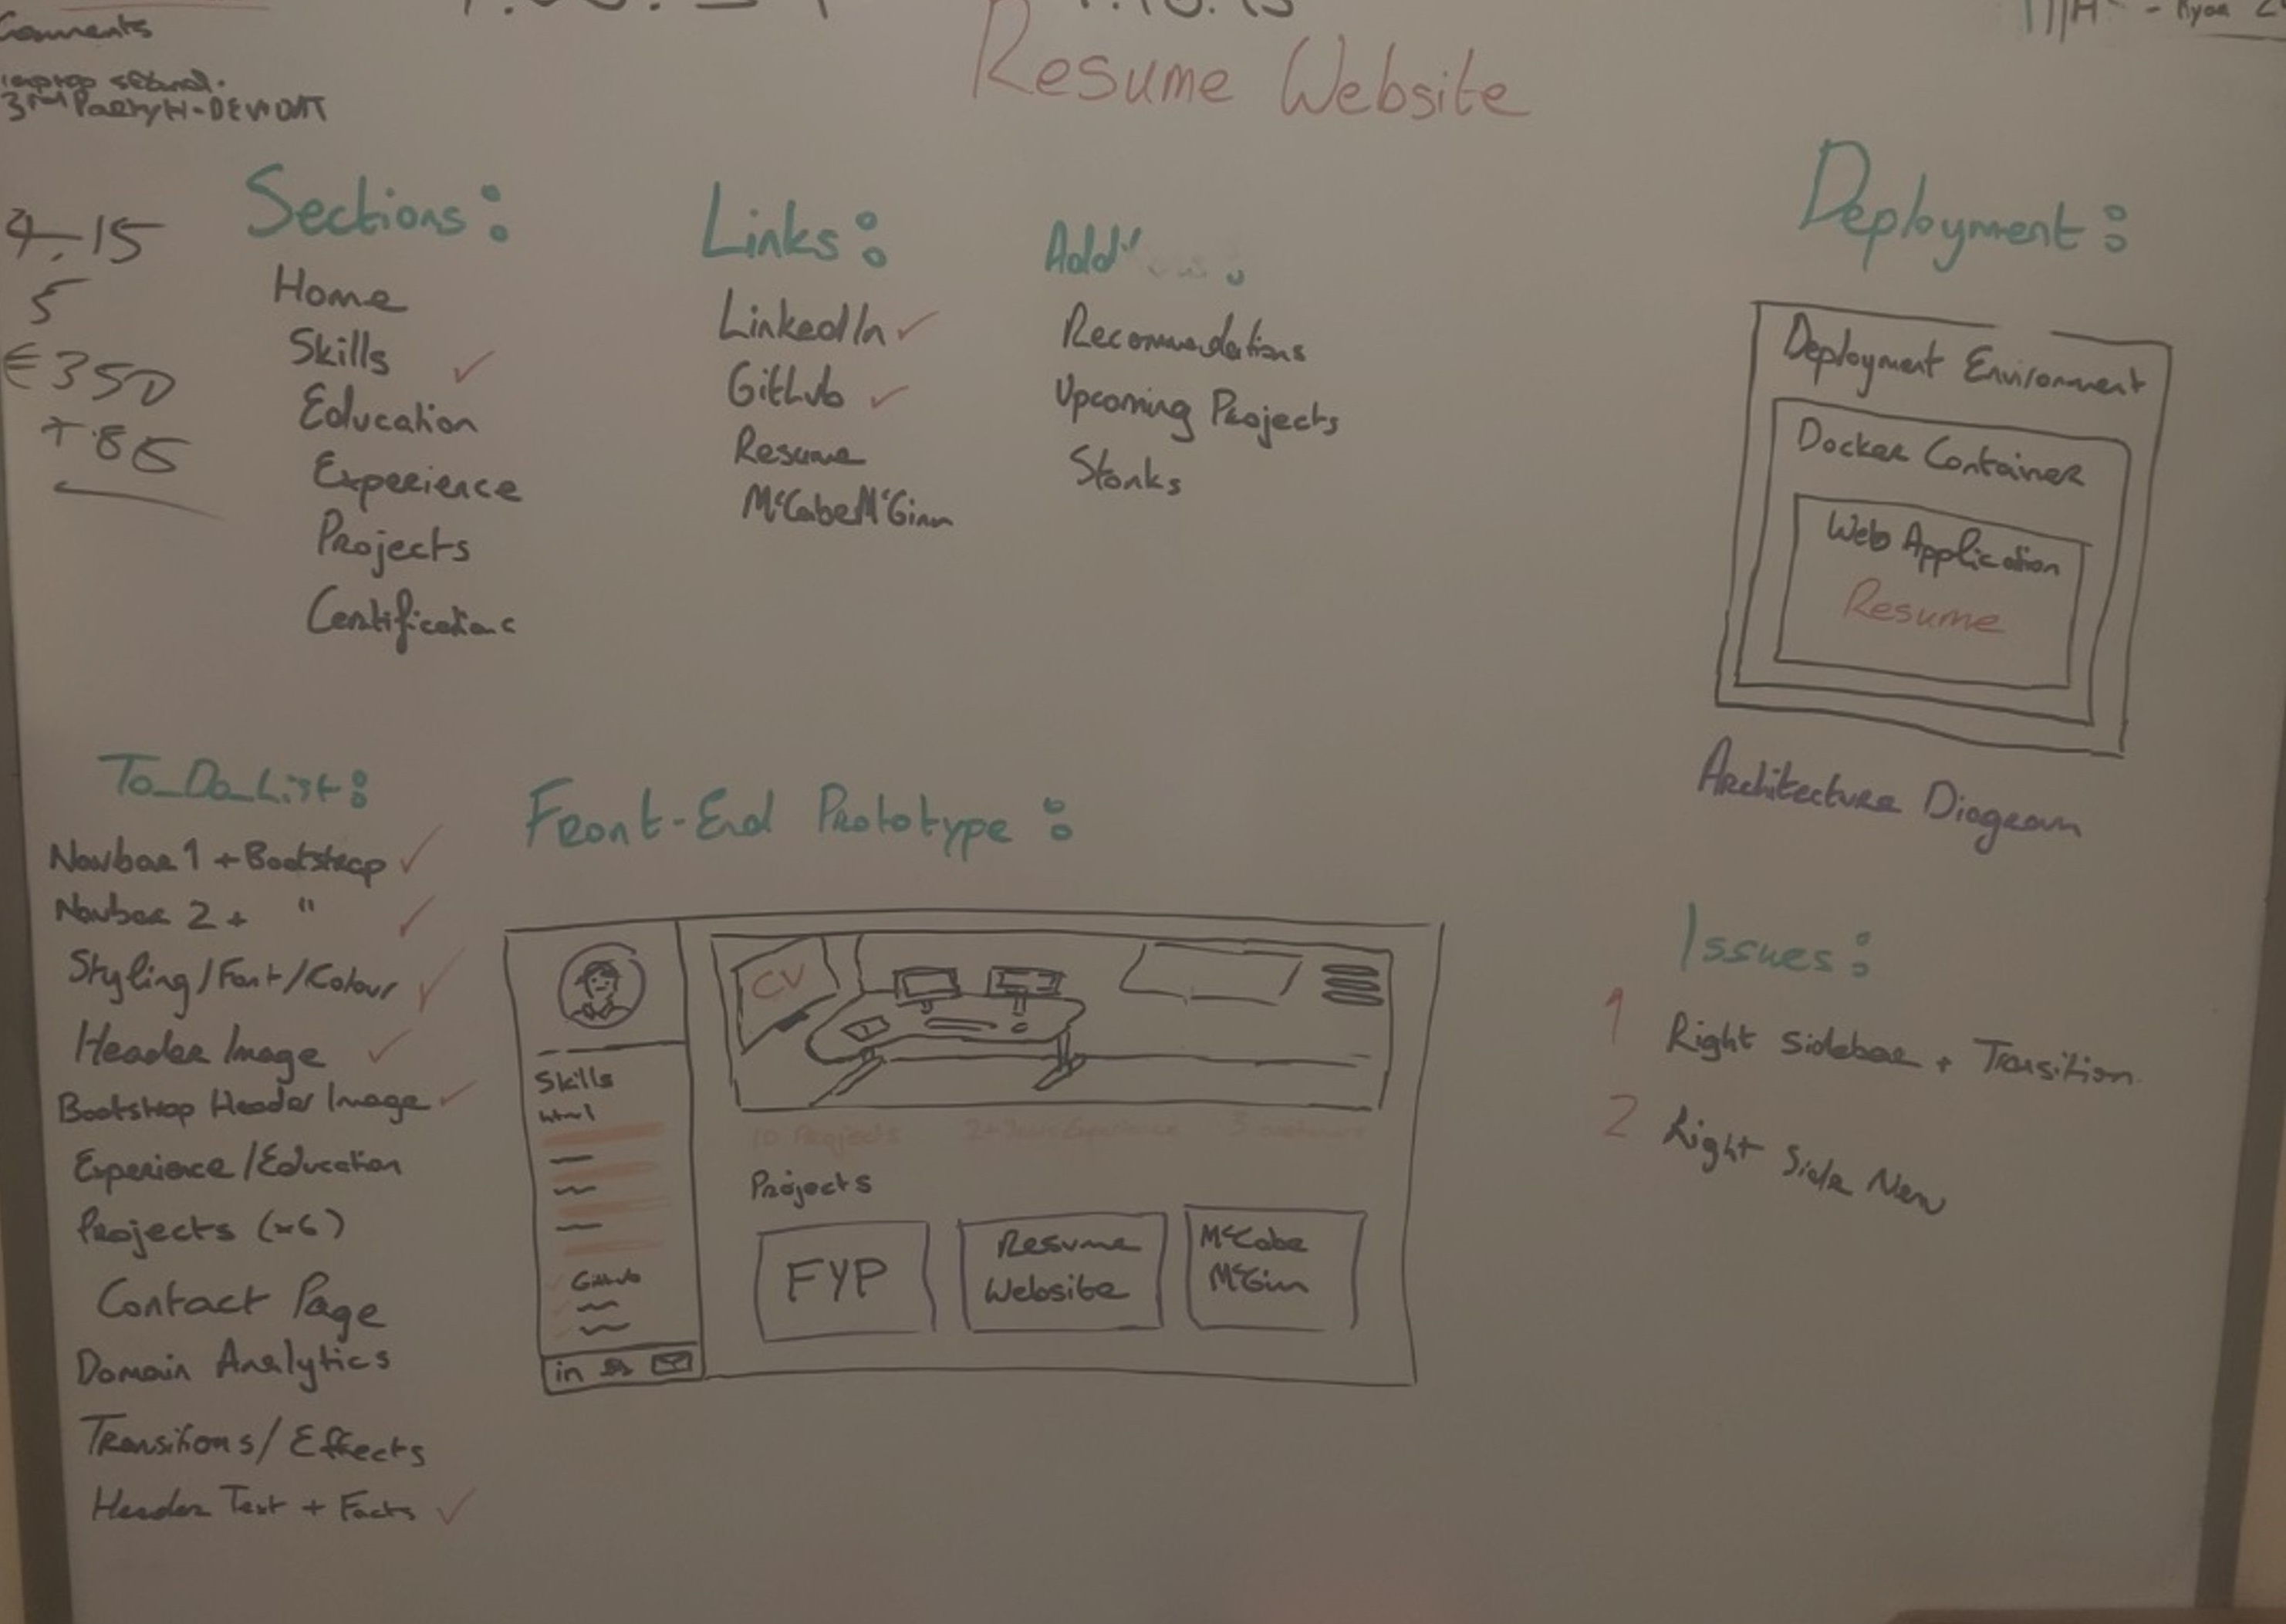 Comments
Resume Website
laptop stand.
3rd Party H-DEV
4.15
5
€350
+ 85
Sections:
Home
Skills ✓
Education
Experience
Projects
Certifications
Links:
LinkedIn ✓
Github ✓
Resume
McCabeMcGinn
Add'
Recommendations
Upcoming Projects
Stonks
Deployment:
Deployment Environment
Docker Container
Web Application
Resume
Architecture Diagram
To_Do_List:
Navbar 1 + Bootstrap ✓
Navbar 2 + " ✓
Styling/Font/Colour ✓
Header Image ✓
Bootstrap Header Image ✓
Experience/Education
Projects (x6)
Contact Page
Domain Analytics
Transitions/Effects
Header Text + Facts ✓
Front-End Prototype:
Skills
html
Github
in
CV
10 Projects 2+ Years Experience 3
Projects
FYP
Resume
Website
McCabe
McGinn
Issues:
1 Right Sidebar + Transition
2 Right Side Menu